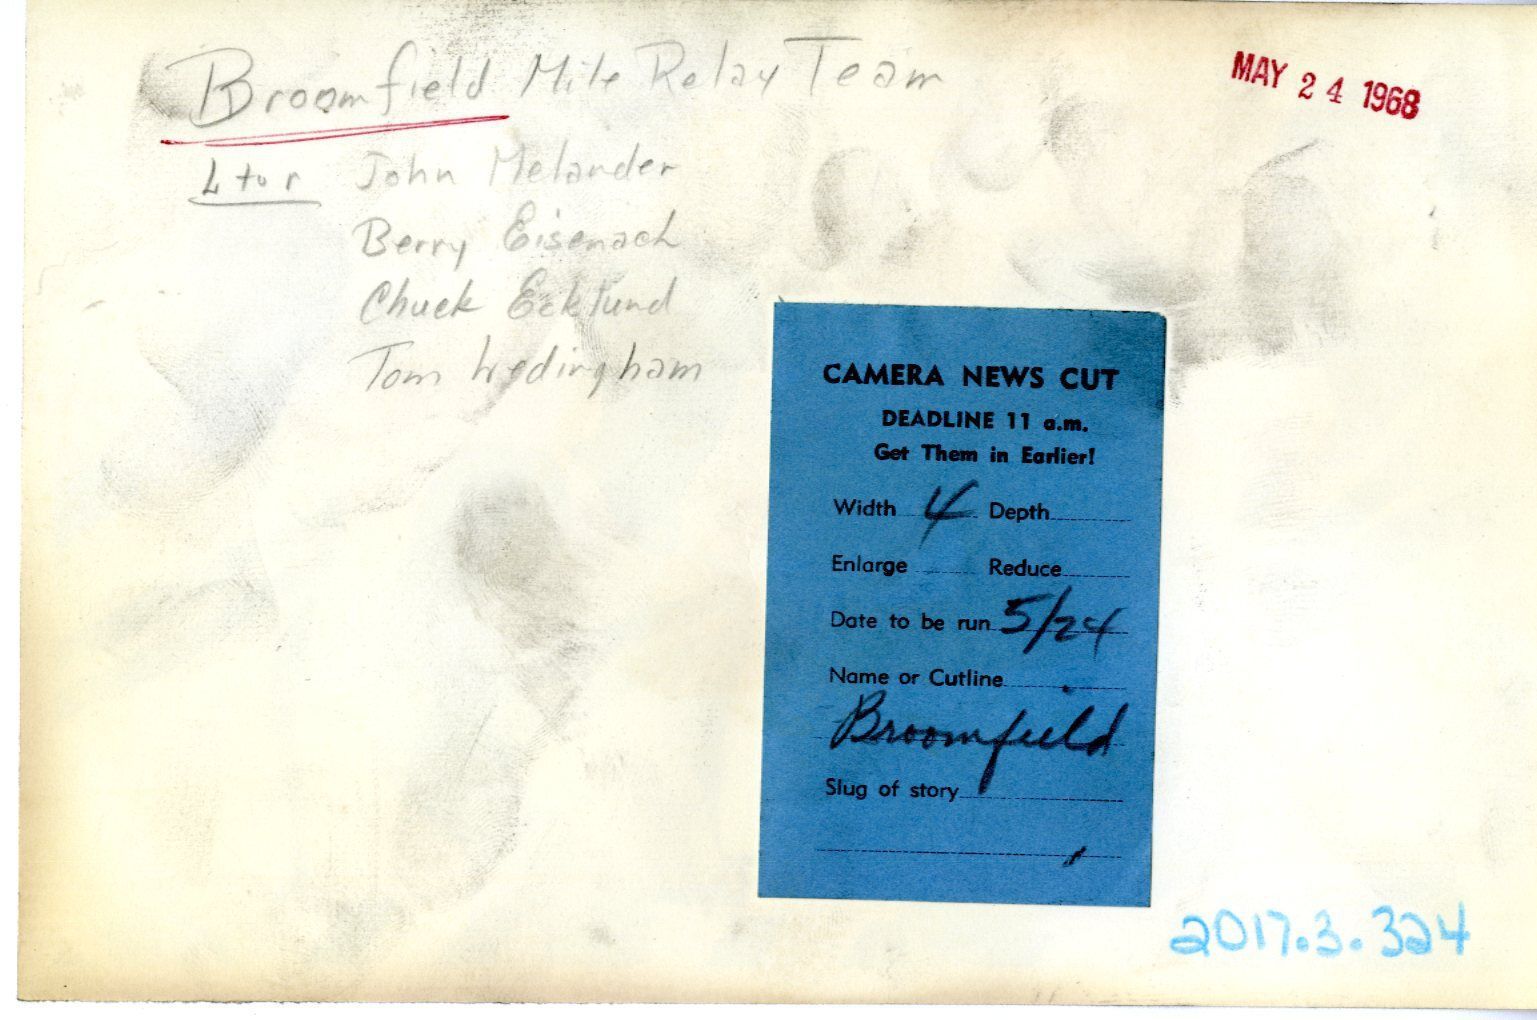 Broomfield Mile Relay Team
MAY 24 1968
L to r John Melander
Berry Eisenach
Chuck Ecklund
Tom Wedingham
CAMERA NEWS CUT
DEADLINE 11 a.m.
Get Them in Earlier!
Width 4 Depth
Enlarge Reduce
Date to be run 5/24
Name or Cutline
Broomfield
Slug of story
2017.3.324